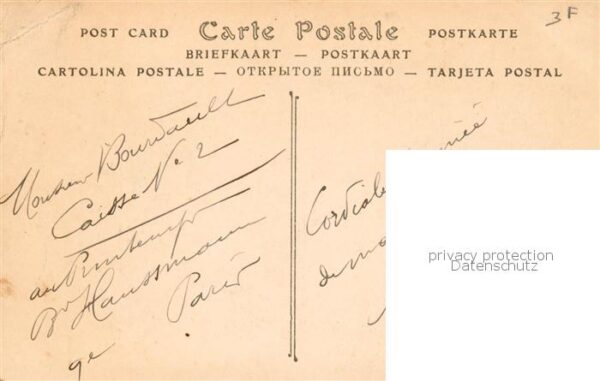 3F
POST CARD Carte Postale POSTKARTE
BRIEFKAART — POSTKAART
CARTOLINA POSTALE — ОТКРЫТОЕ ПИСЬМО — TARJETA POSTAL
Monsieur Bourdault
Caisse No. 2
au Printemps
Bd Haussmann
Paris
9e
Cordiale
de
privacy protection
Datenschutz